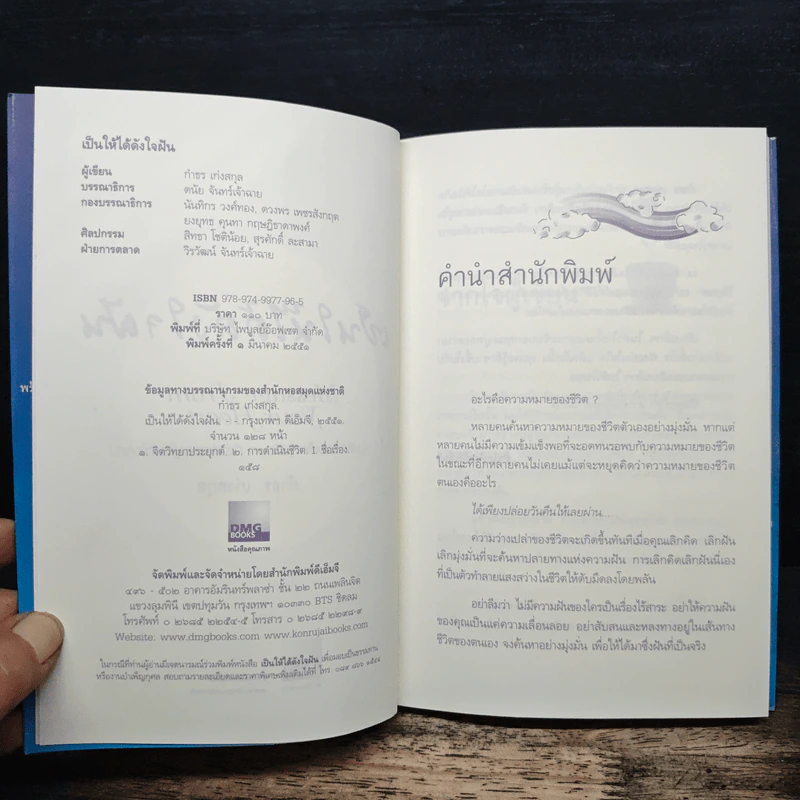 เป็นให้ได้ดังใจฝัน
ผู้เขียน กำธร เก่งสกุล
บรรณาธิการ ดนัย จันทร์เจ้าฉาย
กองบรรณาธิการ นันทิกร วงศ์ทอง, ดวงพร เพชรสังกฤต
ยงยุทธ คุนทา กฤษฎิธาดาพงศ์
ศิลปกรรม สิทธา โชติน้อย, สุรศักดิ์ ละสามา
ฝ่ายการตลาด วิรวัฒน์ จันทร์เจ้าฉาย
ISBN 978-974-9977-96-5
ราคา ๑๑๐ บาท
พิมพ์ที่ บริษัท ไพบูลย์อ๊อฟเซต จำกัด
พิมพ์ครั้งที่ ๑ มีนาคม ๒๕๕๑
ข้อมูลทางบรรณานุกรมของสำนักหอสมุดแห่งชาติ
กำธร เก่งสกุล.
เป็นให้ได้ดังใจฝัน. - - กรุงเทพฯ ดีเอ็มจี, ๒๕๕๑.
จำนวน ๑๒๘ หน้า
๑. จิตวิทยาประยุกต์. ๒. การดำเนินชีวิต. I. ชื่อเรื่อง.
๑๕๘
DMG
BOOKS
หนังสือคุณภาพ
จัดพิมพ์และจัดจำหน่ายโดยสำนักพิมพ์ดีเอ็มจี
๔๙๖ - ๕๐๒ อาคารอัมรินทร์พลาซ่า ชั้น ๒๒ ถนนเพลินจิต
แขวงลุมพินี เขตปทุมวัน กรุงเทพฯ ๑๐๓๓๐ BTS ชิดลม
โทรศัพท์ ๐ ๒๖๘๕ ๒๒๕๔-๕ โทรสาร ๐ ๒๖๘๕ ๒๒๙๘-๙
Website: www.dmgbooks.com www.konrujaibooks.com
ในกรณีที่ท่านผู้อ่านมีเจตนารมณ์ร่วมพิมพ์หนังสือ เป็นให้ได้ดังใจฝัน เพื่อมอบเป็นธรรมทาน
หรืองานบำเพ็ญกุศล สอบถามรายละเอียดและราคาพิเศษเพิ่มเติมได้ที่ โทร.
คำนำสำนักพิมพ์
อะไรคือความหมายของชีวิต ?
หลายคนค้นหาความหมายของชีวิตตัวเองอย่างมุ่งมั่น หากแต่
หลายคนไม่มีความเข้มแข็งพอที่จะอดทนรอพบกับความหมายของชีวิต
ในขณะที่อีกหลายคนไม่เคยแม้แต่จะหยุดคิดว่าความหมายของชีวิต
ตนเองคืออะไร
ได้เพียงปล่อยวันคืนให้เลยผ่าน....
ความว่างเปล่าของชีวิตจะเกิดขึ้นทันทีเมื่อคุณเลิกคิด เลิกฝัน
เลิกมุ่งมั่นที่จะค้นหาปลายทางแห่งความฝัน การเลิกคิดเลิกฝันนี่เอง
ที่เป็นตัวทำลายแสงสว่างในชีวิตให้ดับมืดลงโดยพลัน
อย่าลืมว่า ไม่มีความฝันของใครเป็นเรื่องไร้สาระ อย่าให้ความฝัน
ของคุณเป็นแค่ความเลื่อนลอย อย่าสับสนและหลงทางอยู่ในเส้นทาง
ชีวิตของตนเอง จงค้นหาอย่างมุ่งมั่น เพื่อให้ได้มาซึ่งฝันที่เป็นจริง